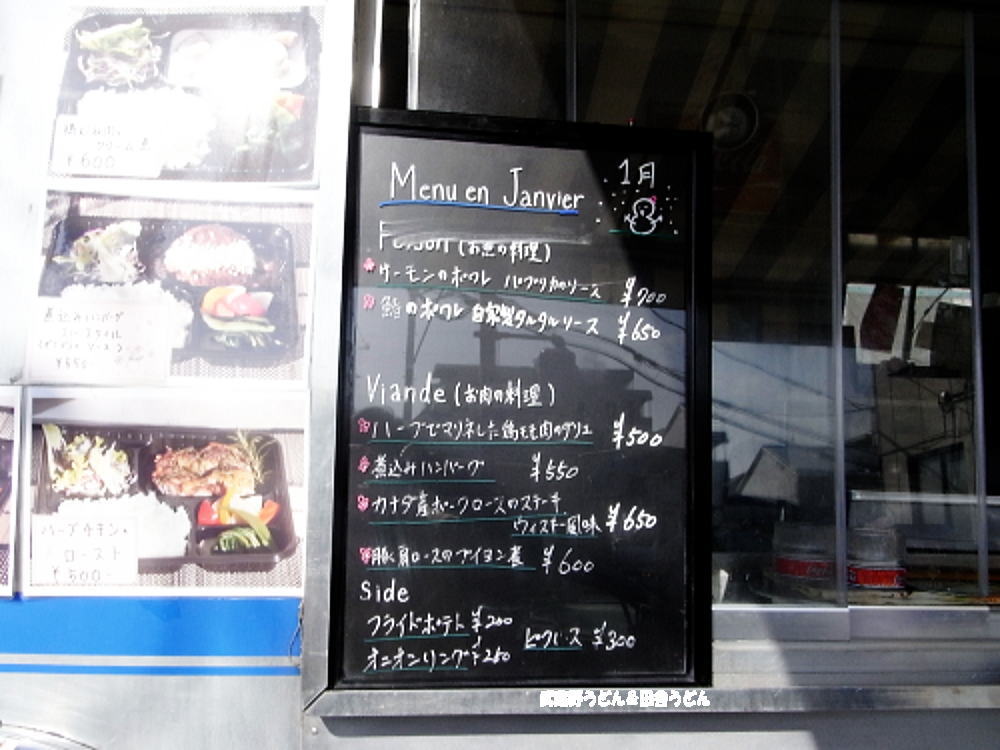 Menu en Janvier
1月
(お魚の料理)
サーモンのポワレ パプリカのソース ¥700
のポワレ 自家製タルタルソース ¥650
Viande (お肉の料理)
ハーブでマリネした鶏もも肉のグリエ ¥500
煮込みハンバーグ ¥550
カナダ産ポークロースのステーキ
ウィスキー風味 ¥650
豚肩ロースのブイヨン煮 ¥600
Side
フライドポテト ¥200
ピクルス ¥300
オニオンリング ¥250
¥600
煮込みハンバーグ
¥550
ハーブチキン・
ロースト
¥500-
武蔵野うどん&田舎うどん